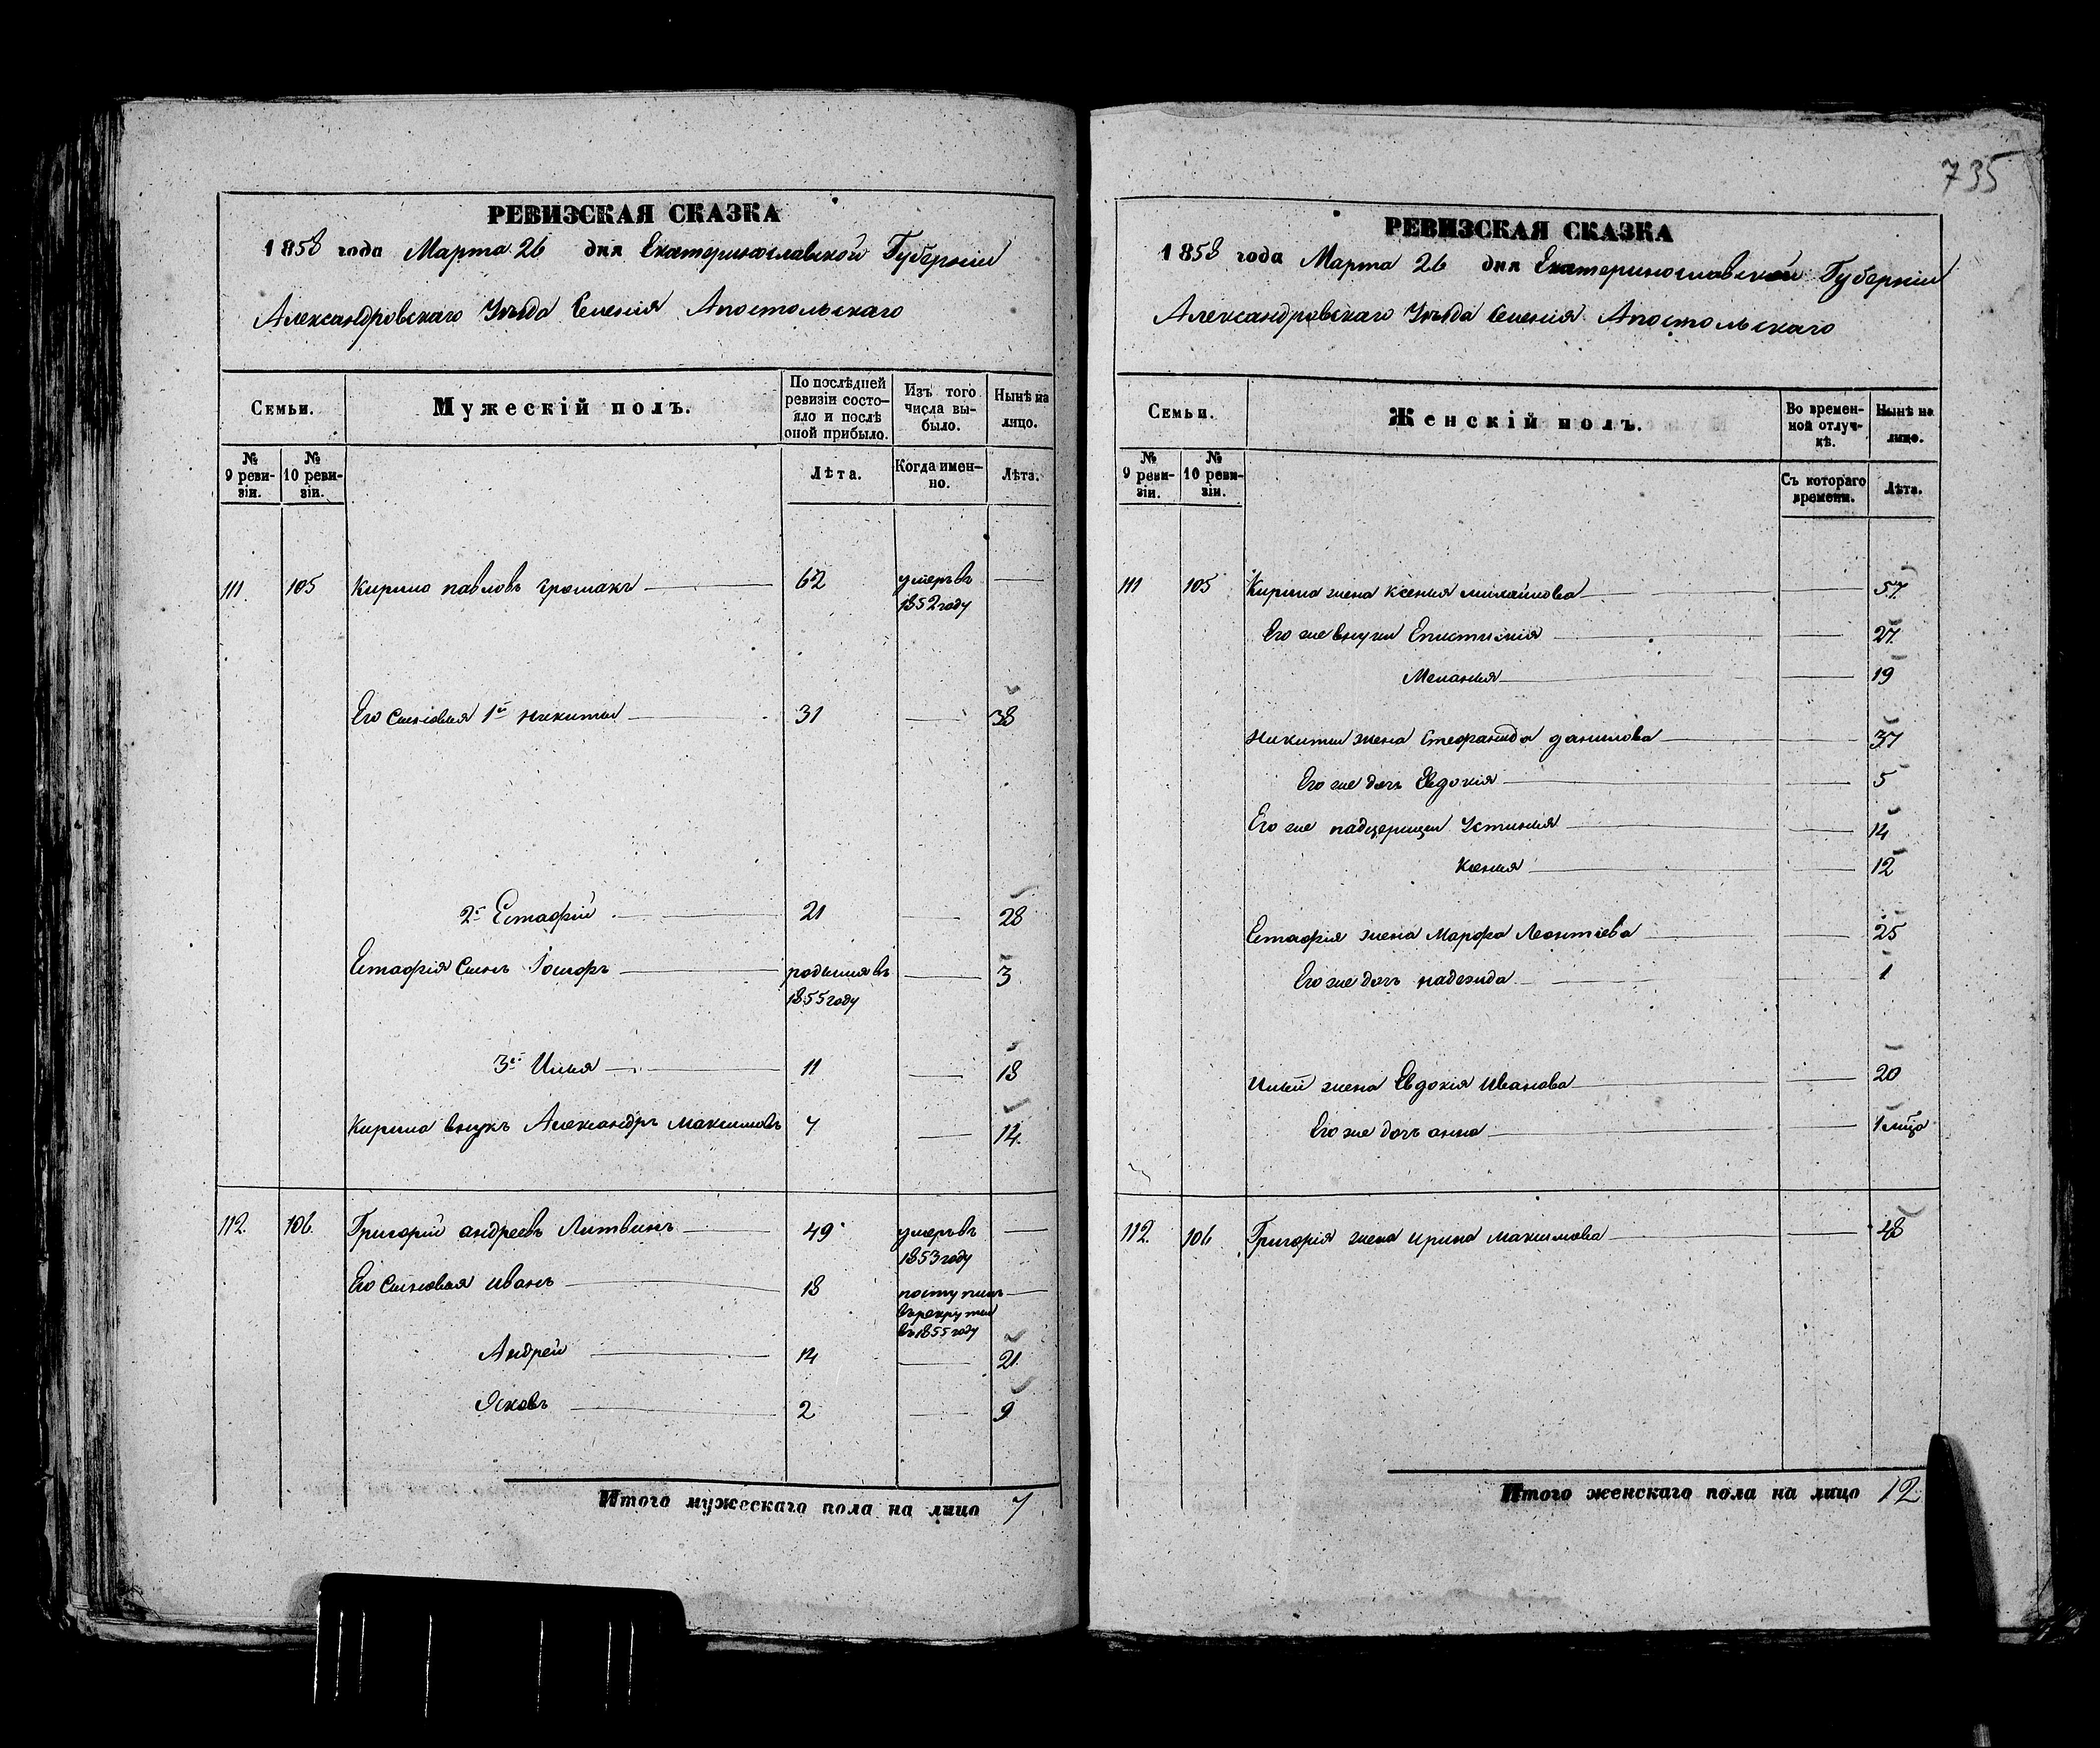 735
РЕВИЗСКАЯ СКАЗКА
1858 года Марта 26 дня Екатеринославской Губернии
Александровскаго Уезда Селения Апостольскаго
Семьи.
Мужескій полъ.
По послѣдней ревизіи состояло и послѣ оной прибыло.
Изъ того числа выбыло.
Нынѣ на лицо.
№ 9 ревизіи.
№ 10 ревизіи.
Лѣта.
Когда именно.
Лѣта.
111 105 Кирило павловъ 62 умеръ въ
1852 году
Его Сыновья 1й Никита 31 38
2й Естафій 21 28
Естафія Сынъ родился въ 3
1855 году
3й Илья 11 18
Кирила внукъ Александръ Максимовъ 7 14
112. 106. Григорій андреевъ Литвинъ 49 умеръ въ
1853 году
Его Сыновья иванъ 18 поступилъ
въ рекруты
въ 1855 году
Андрей 14 21
Яковъ 2 9
Итого мужескаго пола на лицо 7
РЕВИЗСКАЯ СКАЗКА
1858 года Марта 26 дня Екатеринославской Губерніи
Александровскаго Уезда Селения Апостольскаго
Семьи.
Женскій полъ.
Во временной отлучкѣ.
Нынѣ на лицо.
№ 9 ревизіи.
№ 10 ревизіи.
Съ котораго времени.
Лѣта.
111 105 Кирила жена Ксения 57
Его же внуки Епистимия 27
Мелания 19
Никиты жена Стефанида данилова 37
Его же дочь Евдокия 5
Его же падчерицы Устиния 14
Ксения 12
Естафия жена Марфа Леонтиева 25
Его же дочь надежда 1
Ильи жена Евдокия Иванова 20
Его же дочь анна 1
112. 106 Григорія жена ирина максимова 48
Итого женскаго пола на лицо 12